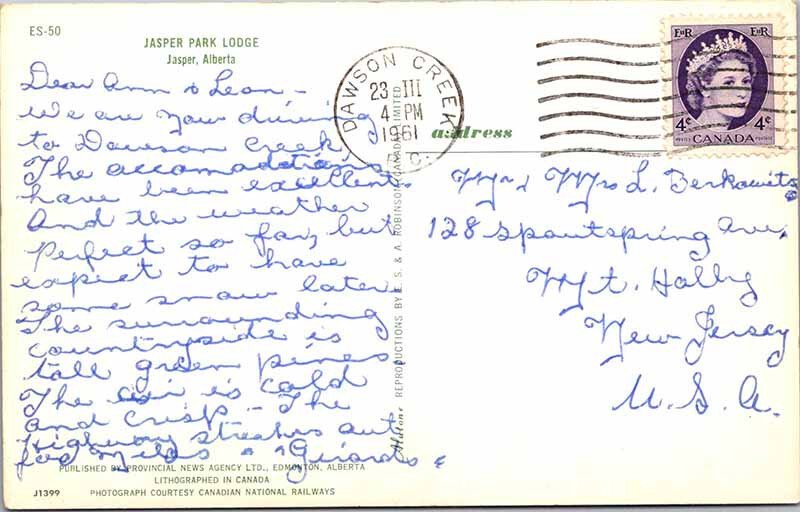 ES-50
JASPER PARK LODGE
Jasper, Alberta
Dear Ann & Leon -
We are now driving
to Dawson Creek
The accomodations
have been excellent
And the weather
Perfect so far, but
expect to have
some snow later
The surrounding
countryside is
tall green pines
The air is cold
and crisp - The
Highway streches out
for miles - Girards
PUBLISHED BY PROVINCIAL NEWS AGENCY LTD., EDMONTON, ALBERTA
LITHOGRAPHED IN CANADA
J1399 PHOTOGRAPH COURTESY CANADIAN NATIONAL RAILWAYS
REPRODUCTIONS BY E. S. & A. ROBINSON (CANADA) LIMITED
DAWSON CREEK
23 III
4 PM
1961
B.C.
address
EIIR EIIR
4¢ 4¢
POSTES CANADA POSTAGE
Mr & Mrs L. Berkowitz
128 Spoutspring Ave,
Mt. Holly
New Jersey
U.S.A.